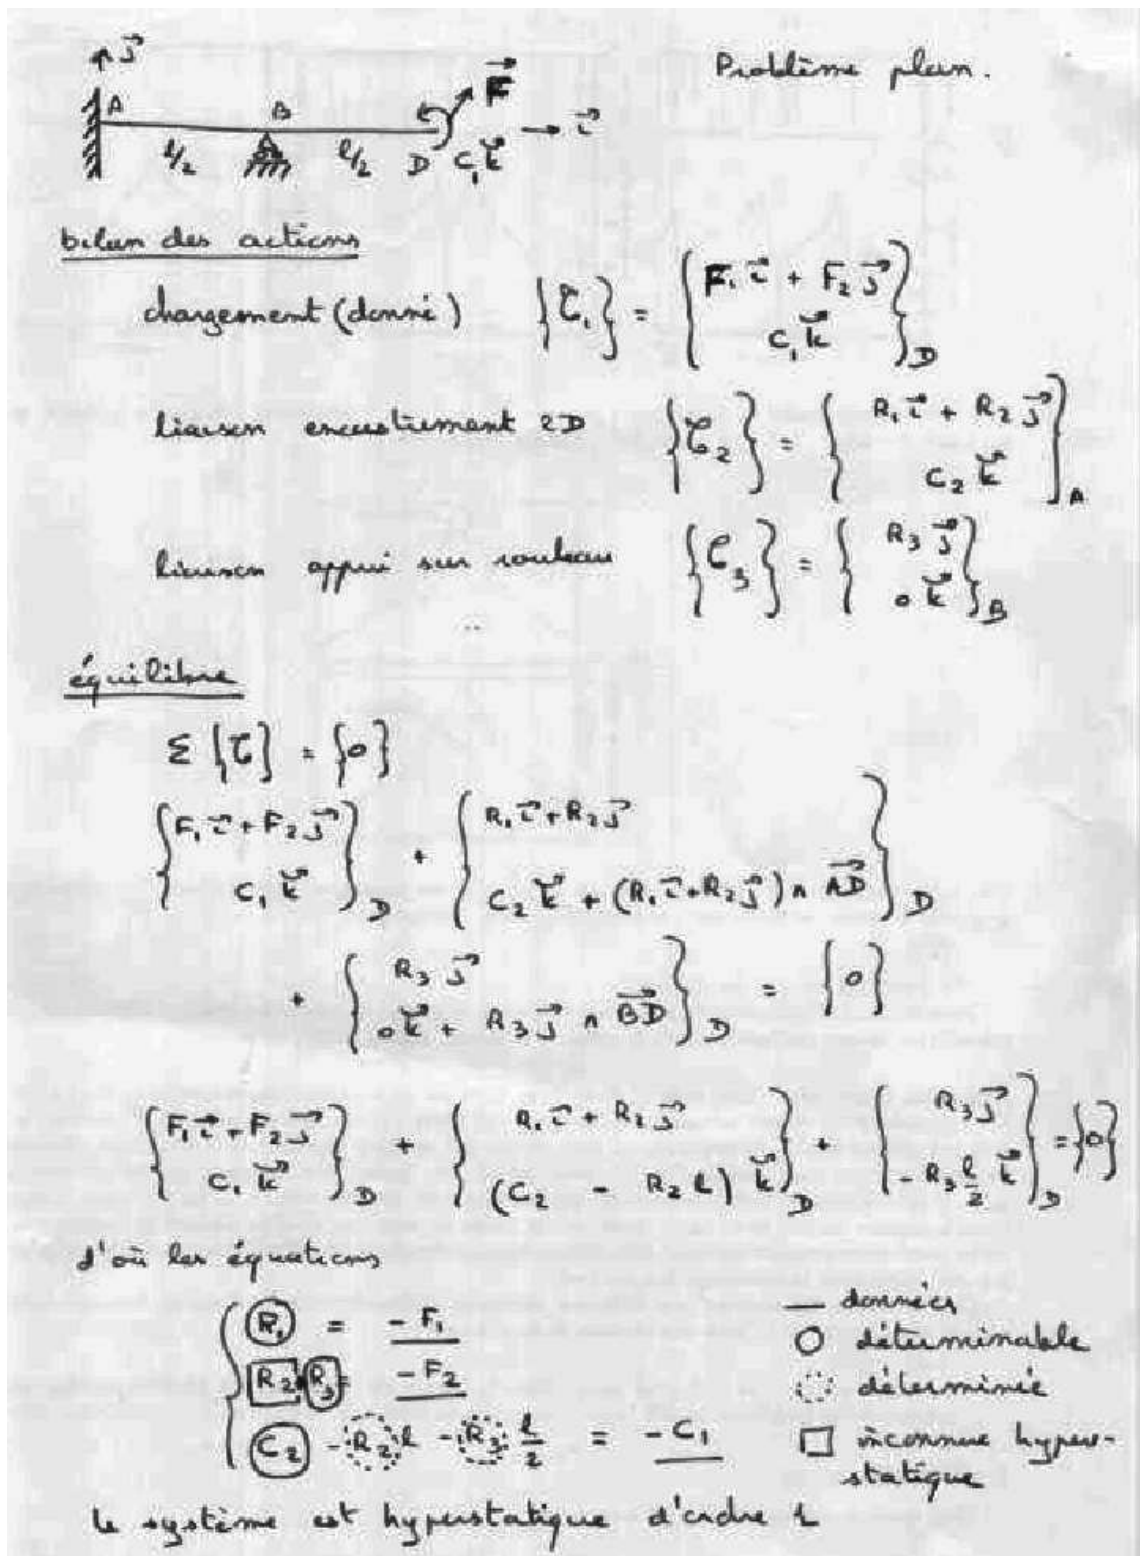 Problème plan.
j⃗
A B F⃗
l/2 l/2 D C₁k⃗ i⃗
bilan des actions
chargement (donné) {𝒯₁} = {F₁i⃗ + F₂j⃗
C₁k⃗}_D
liaison encastrement 2D {𝒯₂} = {R₁i⃗ + R₂j⃗
C₂k⃗}_A
liaison appui sur rouleau {𝒯₃} = {R₃j⃗
0k⃗}_B
équilibre
Σ{𝒯} = {0}
{F₁i⃗ + F₂j⃗ + {R₁i⃗ + R₂j⃗
C₁k⃗}_D C₂k⃗ + (R₁i⃗ + R₂j⃗) ∧ AD⃗}_D
+ {R₃j⃗ = {0}
0k⃗ + R₃j⃗ ∧ BD⃗}_D
{F₁i⃗ + F₂j⃗ + {R₁i⃗ + R₂j⃗ + {R₃j⃗ = {0}
C₁k⃗}_D (C₂ - R₂l)k⃗}_D -R₃ l/2 k⃗}_D
d'où les équations
R₁ = -F₁
R₂ + R₃ = -F₂
C₂ - R₂l - R₃ l/2 = -C₁
— données
○ déterminable
◌ déterminée
□ inconnue hyper-
statique
le système est hyperstatique d'ordre 1